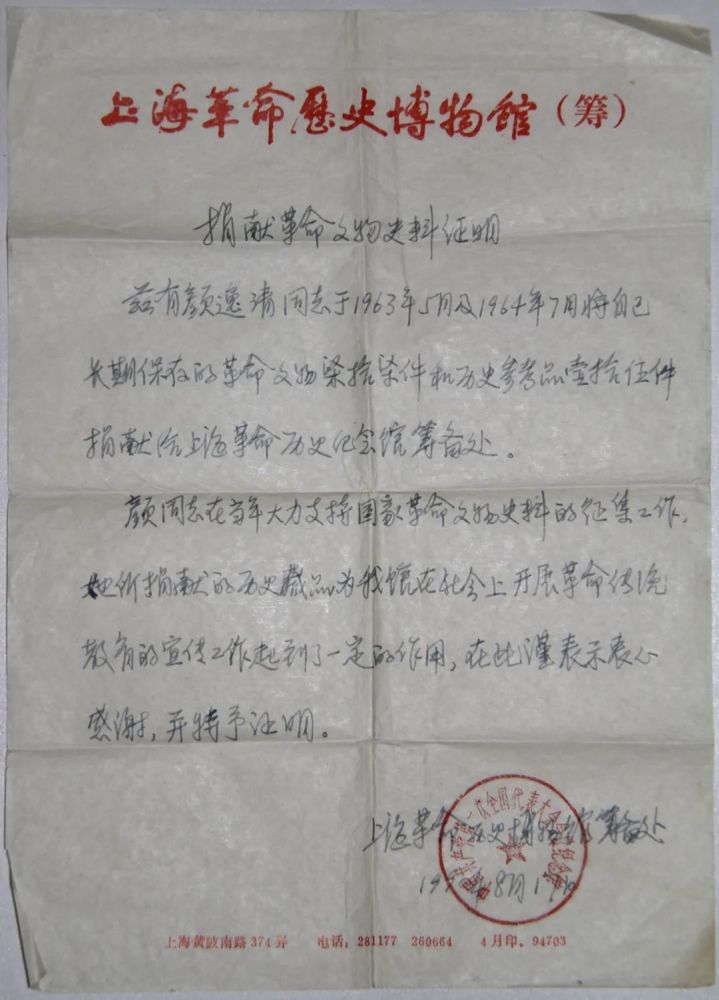 上海革命歷史博物館（筹）
捐献革命文物史料证明
兹有颜逸清同志于1963年5月及1964年7月将自己
长期保存的革命文物柒拾柒件和历史参考品壹拾伍件
捐献给上海革命历史纪念馆筹备处。
颜同志在当年大力支持国家革命文物史料的征集工作，
她所捐献的历史藏品为我馆在社会上开展革命传统
教育的宣传工作起到了一定的作用，在此谨表示衷心
感谢，并特予证明。
上海革命历史博物馆筹备处
年8月1
中国共产党第一次全国代表大会会址纪念馆
上海黄陂南路374弄 电话：281177 260664 4月印．94703